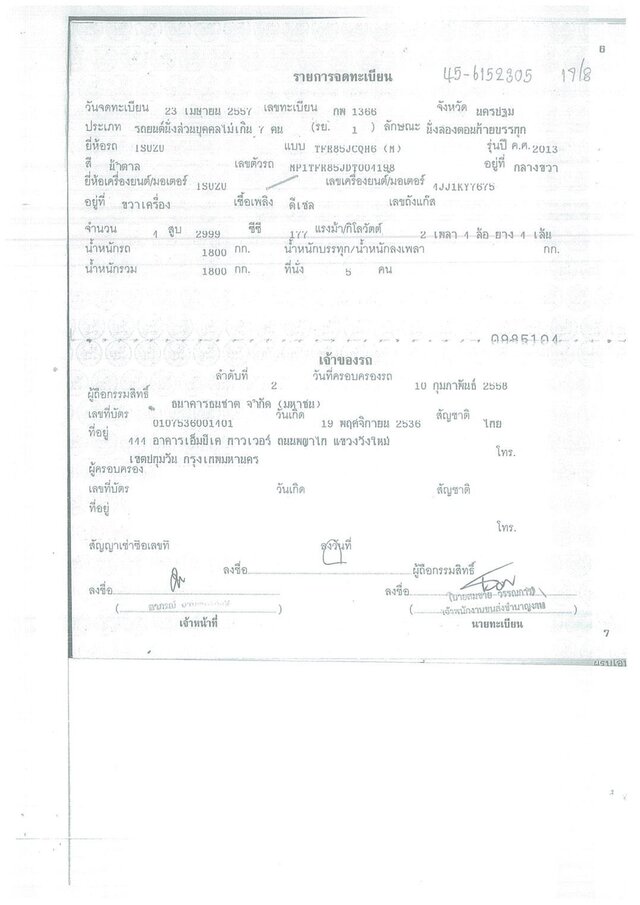 6
รายการจดทะเบียน 45-6152305 19/8
วันจดทะเบียน 23 เมษายน 2557 เลขทะเบียน กพ 1366 จังหวัด นครปฐม
ประเภท รถยนต์นั่งส่วนบุคคลไม่เกิน 7 คน (รย. 1 ) ลักษณะ นั่งสองตอนท้ายบรรทุก
ยี่ห้อรถ ISUZU แบบ TFR85JCQH6 (M) รุ่นปี ค.ศ. 2013
สี น้ำตาล เลขตัวรถ MP1TFR85JDT004198 อยู่ที่ กลางขวา
ยี่ห้อเครื่องยนต์/มอเตอร์ ISUZU เลขเครื่องยนต์/มอเตอร์ 4JJ1KY7675
อยู่ที่ ขวาเครื่อง เชื้อเพลิง ดีเซล เลขถังแก๊ส
จำนวน 4 สูบ 2999 ซีซี 177 แรงม้า/กิโลวัตต์ 2 เพลา 4 ล้อ ยาง 4 เส้น
น้ำหนักรถ 1800 กก. น้ำหนักบรรทุก/น้ำหนักลงเพลา กก.
น้ำหนักรวม 1800 กก. ที่นั่ง 5 คน
0985104
เจ้าของรถ
ลำดับที่ 2 วันที่ครอบครองรถ 10 กุมภาพันธ์ 2558
ผู้ถือกรรมสิทธิ์ ธนาคารธนชาต จำกัด (มหาชน)
เลขที่บัตร 0107536001401 วันเกิด 19 พฤศจิกายน 2536 สัญชาติ ไทย
ที่อยู่ 444 อาคารเอ็มบีเค ทาวเวอร์ ถนนพญาไท แขวงวังใหม่
เขตปทุมวัน กรุงเทพมหานคร โทร.
ผู้ครอบครอง
เลขที่บัตร วันเกิด สัญชาติ
ที่อยู่
โทร.
สัญญาเช่าซื้อเลขที่ ลงวันที่
ลงชื่อ ผู้ถือกรรมสิทธิ์
ลงชื่อ ลงชื่อ
( ) (นายสมชาย วรรณภาร์)
เจ้าพนักงานขนส่งชำนาญงาน
เจ้าหน้าที่ นายทะเบียน
7